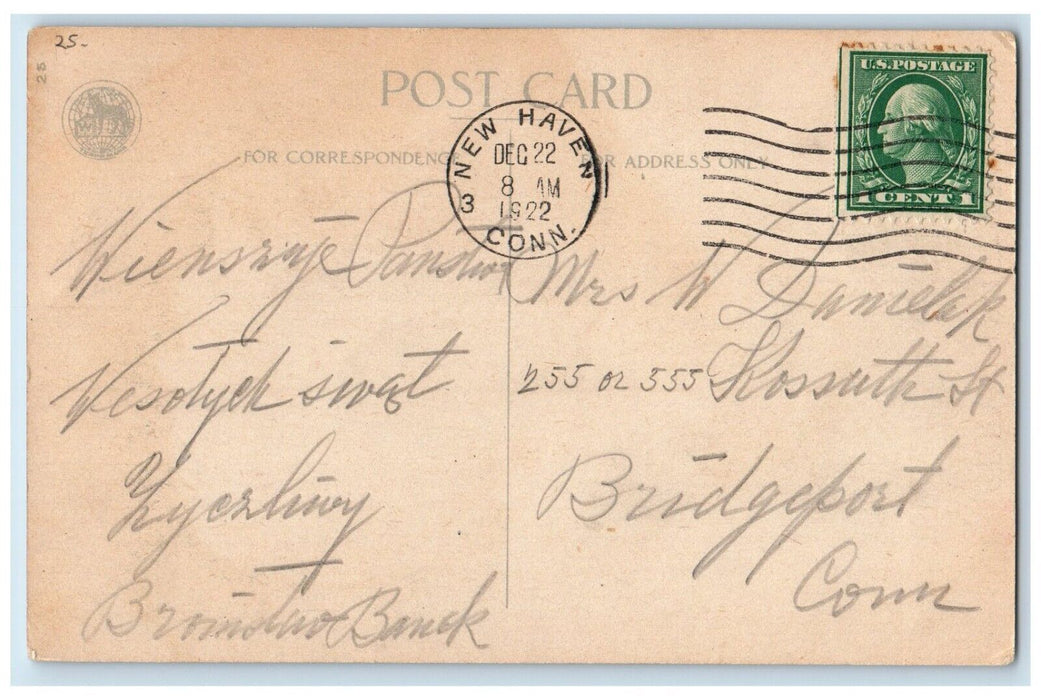 25-
25
POST CARD
FOR CORRESPONDENCE
FOR ADDRESS ONLY
NEW HAVEN
DEC 22
8 AM
1922
3
CONN.
U.S. POSTAGE
1 CENT 1
Wiensruje Panstwt
Wesołych śwąt
Zyczliwy
Bronislaw Banek
Mrs W. Danielak
255 or 555 Kossuth St
Bridgeport
Conn